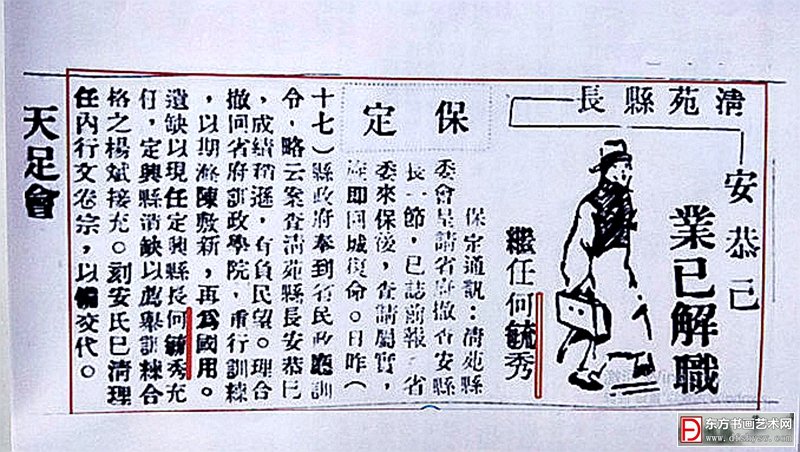 清苑縣長
安恭己
業已解職
繼任何毓秀
保定
保定通訊：清苑縣
委會呈請省府撤查安縣
長一節，已誌前報。省
委來保後，查請屬實，
即回城復命。日昨（
十七）縣政府奉到省民政廳訓
令，略云案查清苑縣長安恭巳
，成績稍遜，有負民望。理合
撤回省府訓政學院，重行訓練
，以期滌陳敷新，再為國用。
遺缺以現任定興縣長何毓秀充
任，定興縣缺以薦舉訓練合
格之楊斌接充。刻安氏巳清理
任內行文卷宗，以備交代。
天足會
东方书画艺术网
www.dfshysw.com